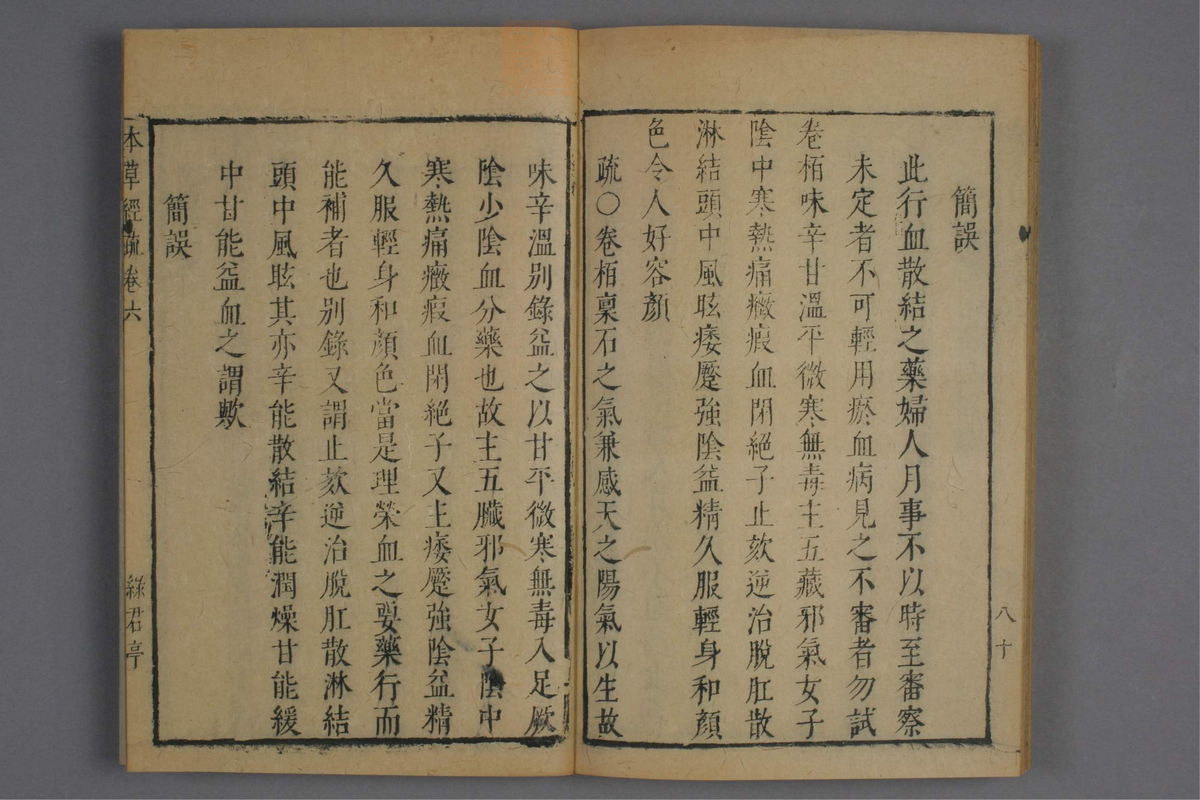 簡誤
此行血散結之藥婦人月事不以時至審察
未定者不可輕用瘀血病見之不審者勿試
卷栢味辛甘溫平微寒無毒主五藏邪氣女子
陰中寒熱痛癥瘕血閉絕子止欬逆治脫肛散
淋結頭中風眩痿蹷強陰益精久服輕身和顏
色令人好容顏
疏〇卷栢稟石之氣兼感天之陽氣以生故
味辛溫別錄益之以甘平微寒無毒入足厥
陰少陰血分藥也故主五臟邪氣女子陰中
寒熱痛癥瘕血閉絕子又主痿蹷強陰益精
久服輕身和顏色當是理榮血之要藥行而
能補者也別錄又謂止欬逆治脫肛散淋結
頭中風眩其亦辛能散結辛能潤燥甘能緩
中甘能益血之謂歟
簡誤
八十
本草經疏卷六
綠君亭